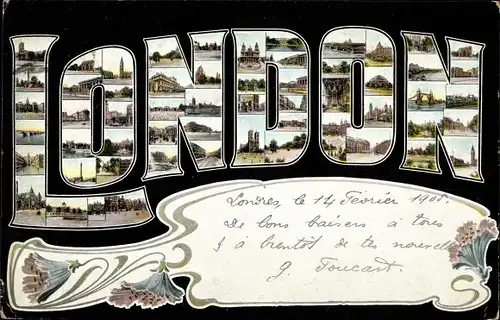 LONDON
Londres le 14 Février 1905.
De bons baisers à tous
& à bientôt de tes nouvelles
G. Foucart.